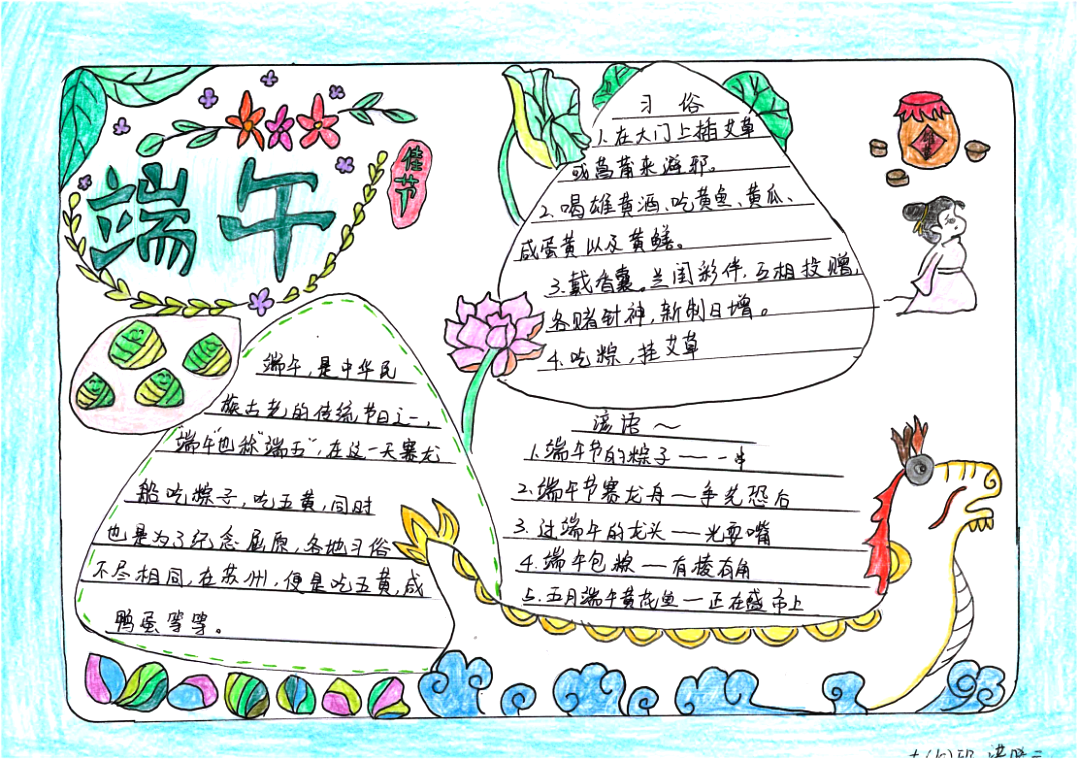 端午
佳节
端午,是中华民
族古老的传统节日之一,
"端午"也称"端五",在这一天赛龙
船吃粽子,吃五黄,同时
也是为了纪念屈原,各地习俗
不尽相同,在苏州,便是吃五黄,咸
鸭蛋等等。
习俗
1.在大门上插艾草
或菖莆来避邪。
2.喝雄黄酒、吃黄鱼、黄瓜、
咸蛋黄以及黄鳝。
3.戴香囊。兰闺彩伴,互相投赠,
各赌针神,新制日增。
4.吃粽,挂艾草
谚语~
1.端午节的粽子——一串
2.端午节赛龙舟—争先恐后
3.过端午的龙头——光耍嘴
4.端午包粽—有棱有角
5.五月端午黄花鱼—正在盛市上